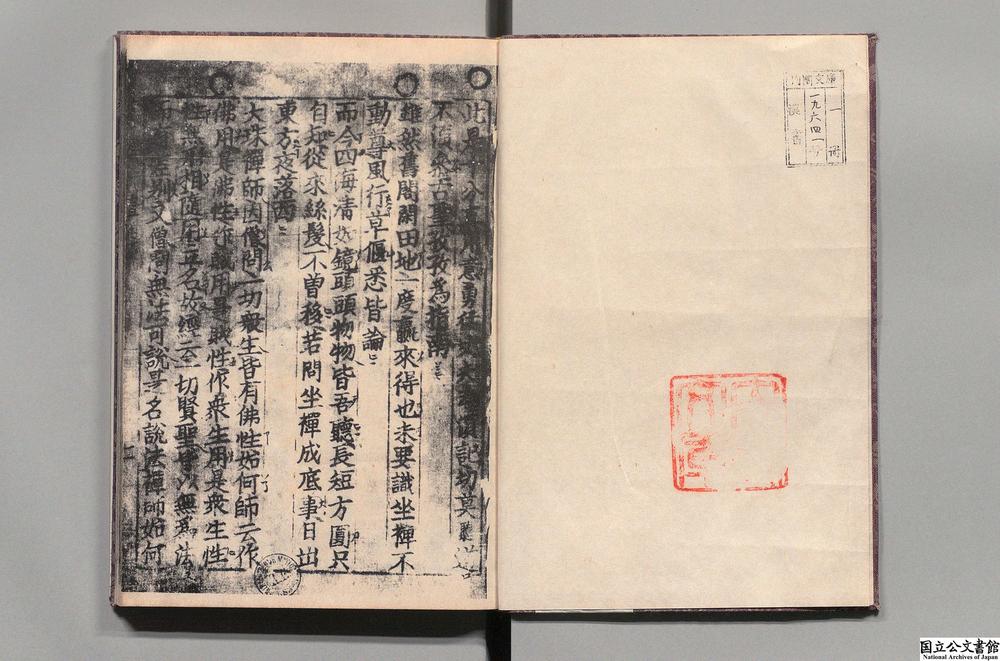 內閣文庫
一冊
一九六四一号
漢書
此是十分 用意勇 記切莫
不 古聖孜孜為指南
雖然舊閣閑田地一度贏來得也未要識坐禪不
動尊風行草偃悉皆論
而今四海清如鏡頭頭物物皆吾聽長短方圓只
自知從來絲髮不曾移若問坐禪成底事日出
東方夜落西
大珠禪師因僧問一切衆生皆有佛性如何師云作
佛用是佛性作賊用是賊性作衆生用是衆生性
性無形相隨用立名故經云一切賢聖皆以無為法
而有差別又僧問無法可說是名說法禪師如何
国立公文書館
National Archives of Japan